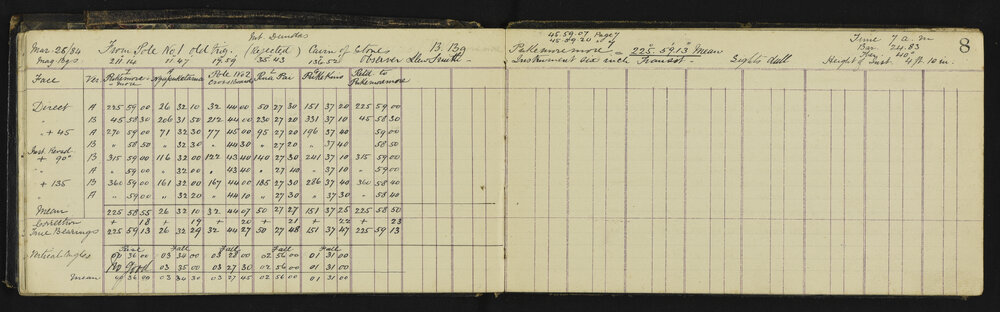 Mt. Dundas
Mar. 26/84 From Pole No 1 old Trig. (Rejected) Cairn of Stones B. Bg
Mag. Bgs 11 47 19 59 35 43 136 52 Observer
45 59 07 Page 7
45 59 20
= 225° 59' 13" Mean
Instrument six inch Transit. Lights dull
Time 7 a.m
Bar 24.83
Ther 40°
Height of Inst. 4 ft. 10 in.
8
Face Ver
Direct A 225 59 00 26 32 10 32 44 00 50 27 30 151 37 20 225 59 00
" B 45 58 30 206 31 50 212 44 00 230 27 20 331 37 10 45 58 30
" + 45 A 270 59 00 71 32 30 77 45 00 95 27 20 196 37 40 59 00
" B " 58 50 " 32 30 " 44 30 " 27 20 " 37 40 58 50
Inst. Revsd.
+ 90° B 315 59 00 116 32 00 122 43 40 140 27 30 241 37 10 315 59 00
" A " 59 00 " 32 00 " 43 40 " 27 40 " 37 10 " 59 00
+ 135 B 360 59 00 161 32 00 167 44 00 185 27 30 286 37 40 360 58 40
" A " 59 00 " 32 20 " 44 10 " 27 30 " 37 30 " 58 40
Mean 225 58 55 26 32 10 32 44 07 50 27 27 151 37 25 225 58 50
Correction + 18 + 19 + 20 + 21 + 22 + 23
True Bearings 225 59 13 26 32 29 32 44 27 50 27 48 151 37 47 225 59 13
Rise Fall Fall Fall Fall
Vertical Angles 00 36 00 03 34 00 03 28 00 02 56 00 01 31 00
No Good 03 35 00 03 27 30 02 56 00 01 31 00
Mean 00 36 00 03 34 30 03 27 45 02 56 00 01 31 00